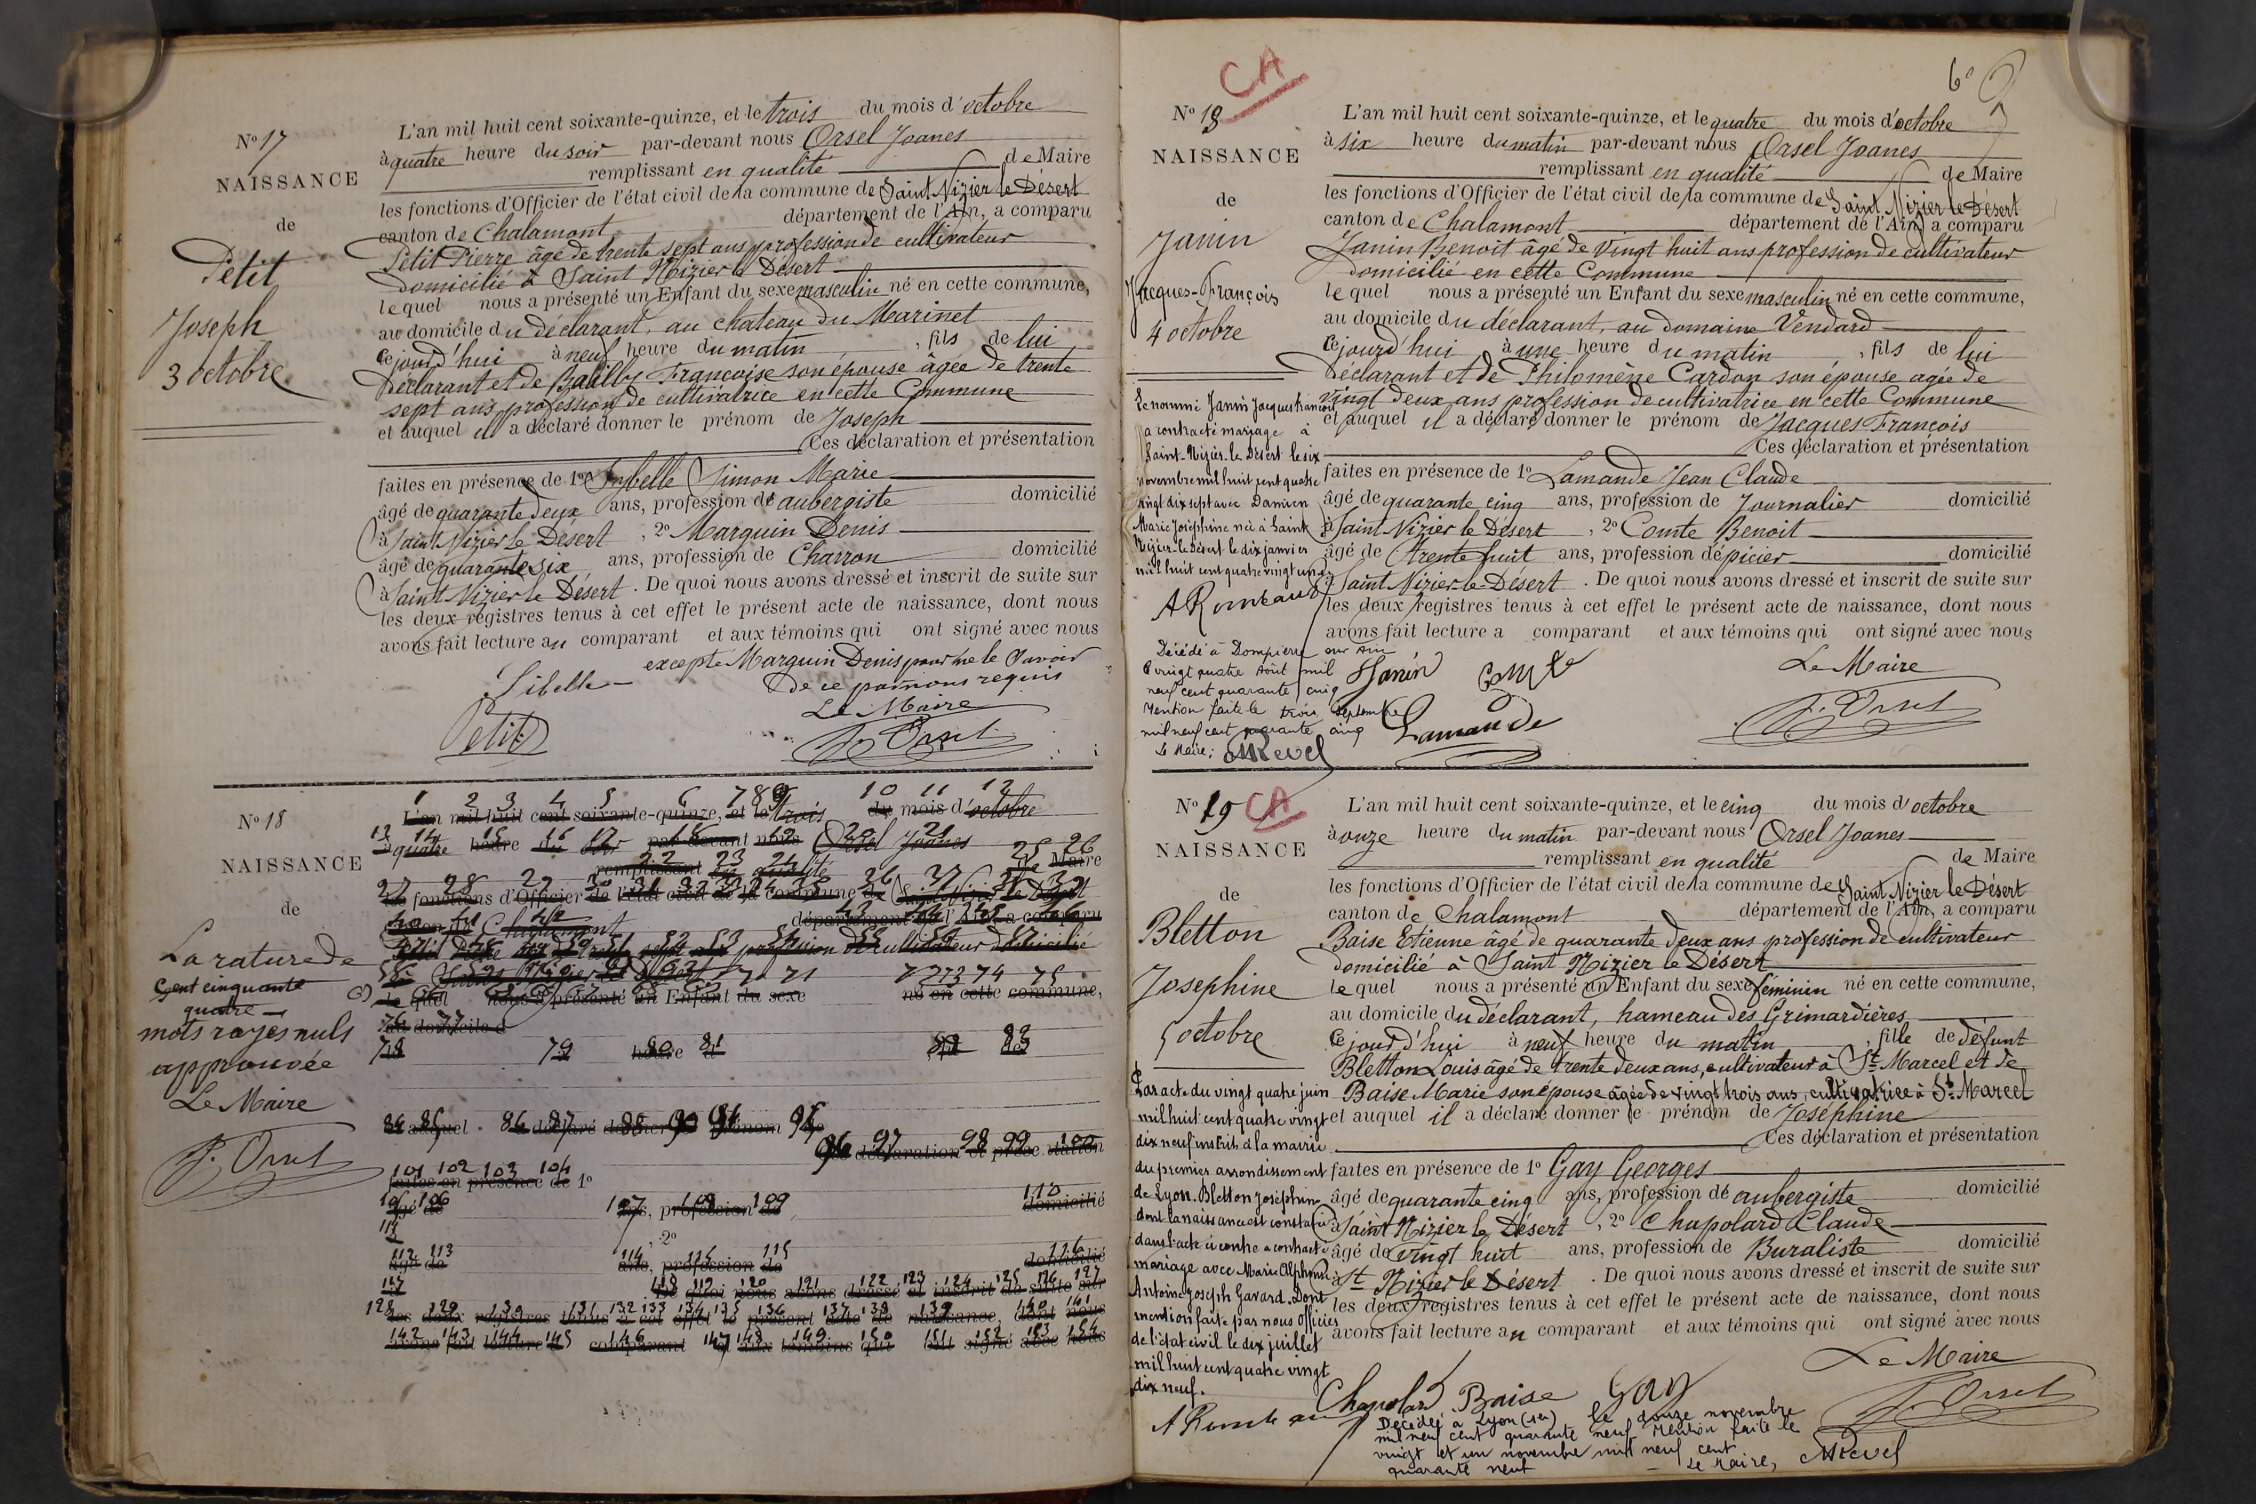 N° 17
NAISSANCE
de
Petit
Joseph
3 octobre
L'an mil huit cent soixante-quinze, et le trois du mois d'octobre
à quatre heure du soir par-devant nous Orsel Joanes
remplissant en qualité de Maire
les fonctions d'Officier de l'état civil de la commune de Saint Nizier le Désert
canton de Chalamont département de l'Ain, a comparu
Petit Pierre âgé de trente sept ans profession de cultivateur
domicilié à Saint Nizier le Désert
lequel nous a présenté un Enfant du sexe masculin né en cette commune,
au domicile du déclarant, au chateau du Marinet
Ce jourd'hui à neuf heure du matin, fils de lui
Déclarant et de Françoise son épouse âgée de trente
sept ans profession de cultivatrice en cette Commune
et auquel il a déclaré donner le prénom de Joseph
Ces déclaration et présentation
faites en présence de 1° Simon Marie
âgé de quarante deux ans, profession de aubergiste domicilié
à Saint Nizier le Désert, 2° Marguin Denis
âgé de quarante six ans, profession de Charron domicilié
à Saint Nizier le Désert. De quoi nous avons dressé et inscrit de suite sur
les deux registres tenus à cet effet le présent acte de naissance, dont nous
avons fait lecture au comparant et aux témoins qui ont signé avec nous
excepté Marguin Denis pour ne le savoir
de ce par nous requis
Sibelle
Le Maire
Petit
J. Orsel
N° 18
NAISSANCE
de
La rature de
Cent cinquante
quatre
mots rayés nuls
approuvée
Le Maire
J. Orsel
1 2 3 4 5 6 7 8 9 10 11 12
L'an mil huit cent soixante-quinze, et le trois du mois d'octobre
à quatre heure du soir par-devant nous Orsel Joanes
remplissant en qualité de Maire
les fonctions d'Officier de l'état civil de la commune de Saint Nizier le Désert
canton de Chalamont département de l'Ain, a comparu
Petit Pierre âgé de trente sept ans profession de cultivateur domicilié
à Saint Nizier le Désert
lequel nous a présenté un Enfant du sexe né en cette commune,
au domicile d
78 79 heure 81 82 83
et auquel a déclaré donner le prénom de
Ces déclaration et présentation
101 102 103 104
faites en présence de 1°
âgé de ans, profession de domicilié
, 2°
âgé de ans, profession de domicilié
De quoi nous avons dressé et inscrit de suite sur
les deux registres tenus à cet effet le présent acte de naissance, dont nous
avons fait lecture a comparant et aux témoins qui ont signé avec nous
CA
N° 18
NAISSANCE
de
Janin
Jacques-François
4 octobre
Le nommé Janin Jacques François
a contracté mariage à
Saint-Nizier-le-Désert le six
novembre mil huit cent quatre
vingt dix sept avec Damien
Marie Joséphine née à Saint
Nizier-le-Désert le dix janvier
mil huit cent quatre vingt un
Décédé à Dompierre sur Ain
le vingt quatre Août mil
neuf cent quarante cinq
Mention faite le trois septembre
mil neuf cent quarante cinq
Le Maire: MRevel
6e
L'an mil huit cent soixante-quinze, et le quatre du mois d'octobre
à six heure du matin par-devant nous Orsel Joanes
remplissant en qualité de Maire
les fonctions d'Officier de l'état civil de la commune de Saint Nizier le Désert
canton de Chalamont département de l'Ain, a comparu
Janin Benoit âgé de vingt huit ans profession de cultivateur
domicilié en cette Commune
lequel nous a présenté un Enfant du sexe masculin né en cette commune,
au domicile du déclarant, au domaine Vendard
Ce jourd'hui à une heure du matin, fils de lui
Déclarant et de Philomène Cardon son épouse agée de
vingt deux ans profession de cultivatrice en cette Commune
et auquel il a déclaré donner le prénom de Jacques François
Ces déclaration et présentation
faites en présence de 1° Lamande Jean Claude
âgé de quarante cinq ans, profession de Journalier domicilié
à Saint Nizier le Désert, 2° Comte Benoit
âgé de trente huit ans, profession d'épicier domicilié
à Saint Nizier-le-Désert. De quoi nous avons dressé et inscrit de suite sur
les deux registres tenus à cet effet le présent acte de naissance, dont nous
avons fait lecture a comparant et aux témoins qui ont signé avec nous
Janin Comte Le Maire
Lamande J. Orsel
N° 19 CA
NAISSANCE
de
Bletton
Josephine
5 octobre
Par acte du vingt quatre juin
mil huit cent quatre vingt
dix neuf inscrit à la mairie
du premier arrondissement
de Lyon. Bletton Joséphine
dont la naissance est constatée
dans l'acte ci contre a contracté
mariage avec Marie Alphonse
Antoine Joseph Gavard. Dont
mention faite par nous officier
de l'état civil le dix juillet
mil huit cent quatre vingt
dix neuf.
L'an mil huit cent soixante-quinze, et le cinq du mois d'octobre
à onze heure du matin par-devant nous Orsel Joanes
remplissant en qualité de Maire
les fonctions d'Officier de l'état civil de la commune de Saint Nizier le Désert
canton de Chalamont département de l'Ain, a comparu
Baise Etienne âgé de quarante deux ans profession de cultivateur
domicilié à Saint Nizier le Désert
lequel nous a présenté un Enfant du sexe féminin né en cette commune,
au domicile du déclarant, hameau des Grimardières
Ce jourd'hui à neuf heure du matin, fille de défunt
Bletton Louis âgé de trente deux ans, cultivateur à St Marcel et de
Baise Marie son épouse âgée de vingt trois ans, cultivatrice à St Marcel
et auquel il a déclaré donner le prénom de Joséphine
Ces déclaration et présentation
faites en présence de 1° Gay Georges
âgé de quarante cinq ans, profession de aubergiste domicilié
à Saint Nizier le Désert, 2° Chapolard Claude
âgé de vingt huit ans, profession de Buraliste domicilié
à St Nizier le Désert. De quoi nous avons dressé et inscrit de suite sur
les deux registres tenus à cet effet le présent acte de naissance, dont nous
avons fait lecture au comparant et aux témoins qui ont signé avec nous
Le Maire
Chapolard Baise Gay J. Orsel
Décédée à Lyon (1er) le douze novembre
mil neuf cent quarante neuf Mention faite le
vingt et un novembre mil neuf cent
quarante neuf Le Maire, MRevel